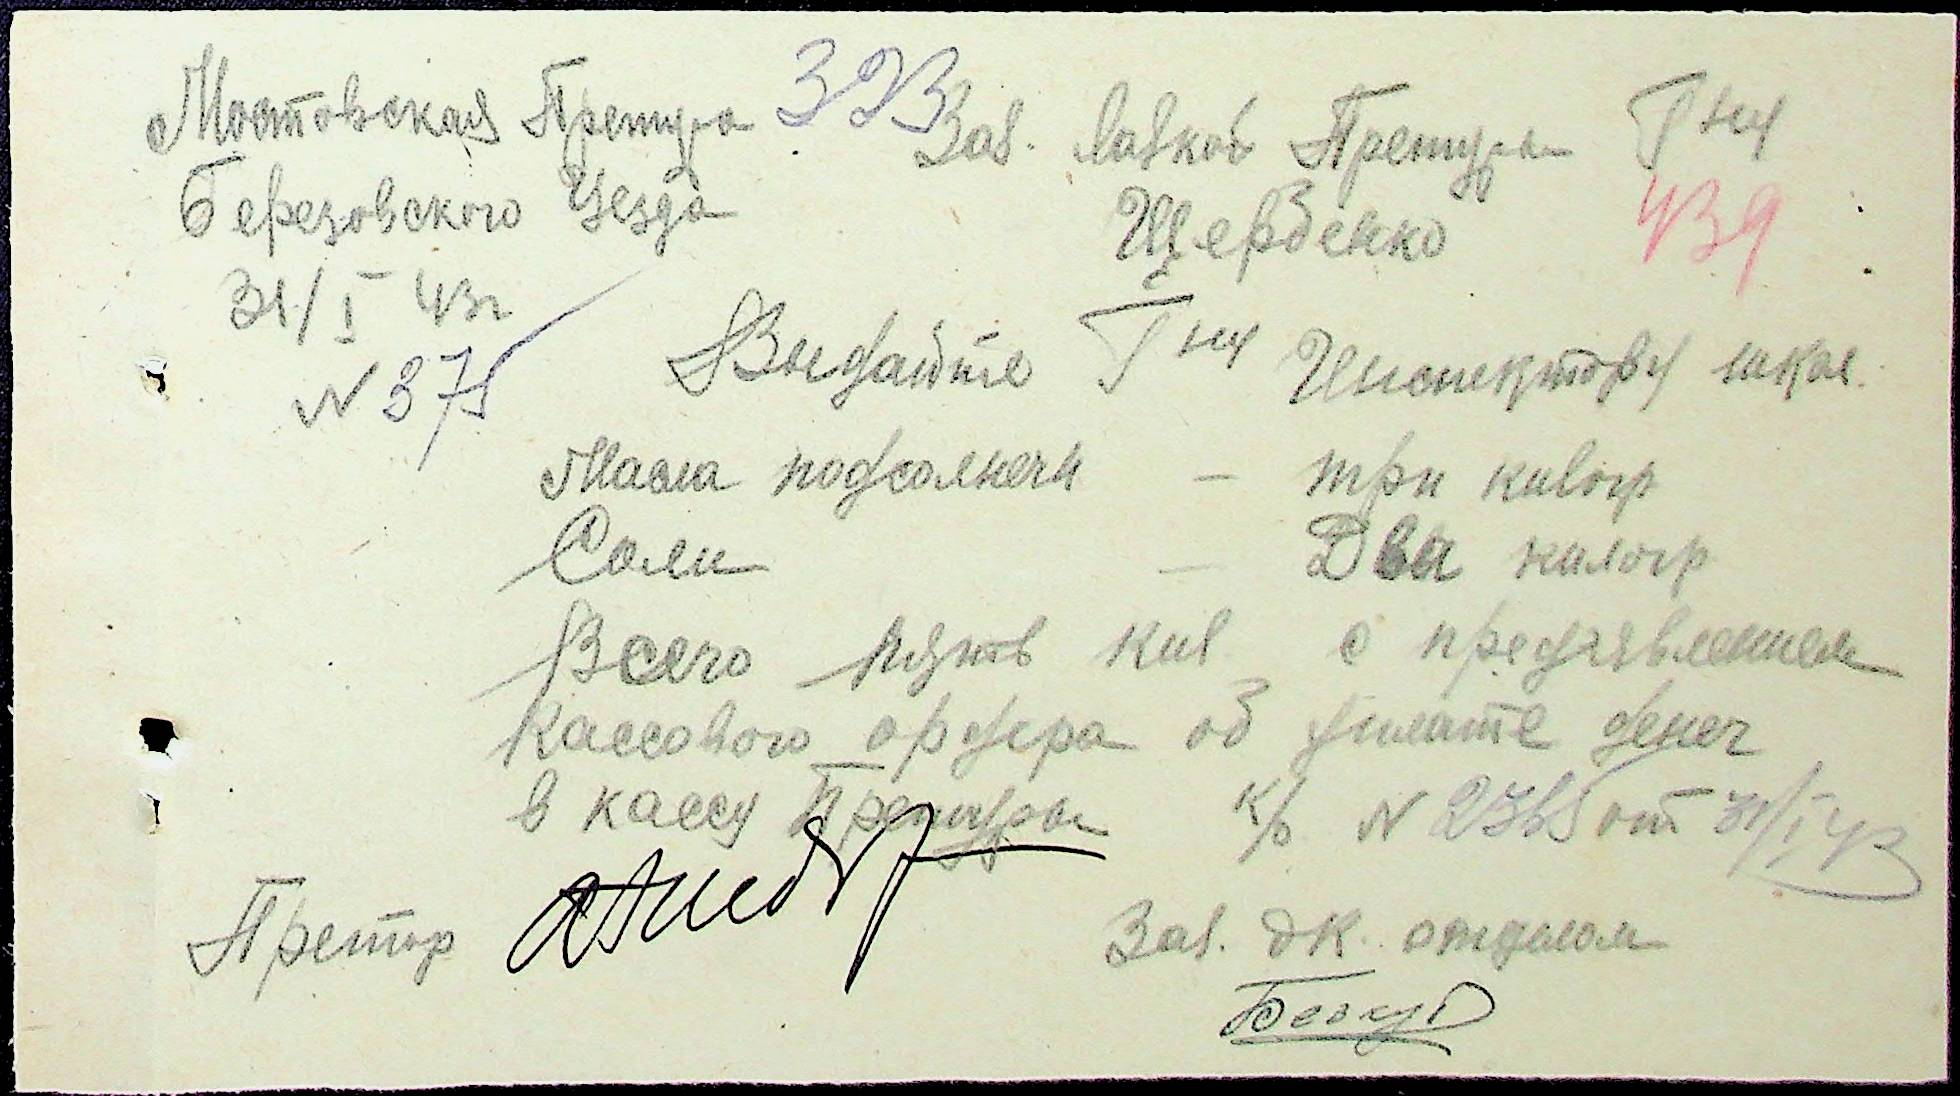 Мостовская Претура
Березовского Уезда
31/I 43г
N 375
323
Зав. лавкой Претуры Гну
Щербенко
439
Выдайте Гну Инспектору школ.
Масла подсолнечн — три килогр
Соли — Два килогр
Всего пять кил. с предъявлением
кассового ордера об уплате денег
в кассу Претуры к/о N 2365 от 31/I 43
Претор
Зав. эк. отделом